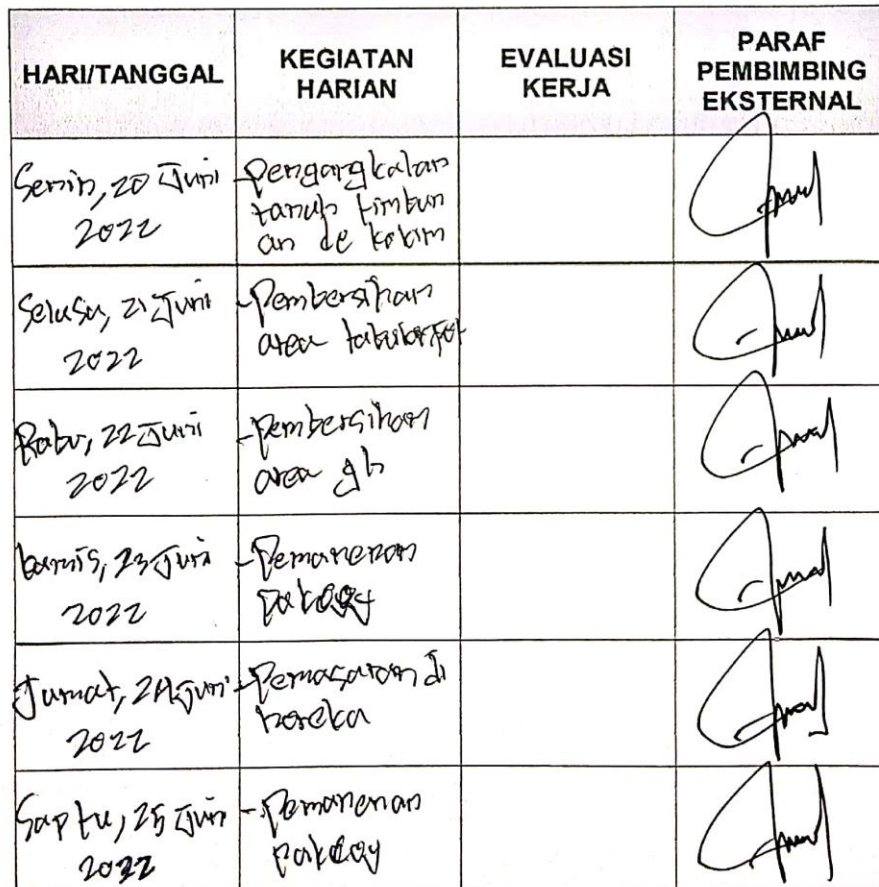 HARI/TANGGAL
KEGIATAN
HARIAN
EVALUASI
KERJA
PARAF
PEMBIMBING
EKSTERNAL
Senin, 20 Juni
2022
- Pengangkatan
tanah timbun
an de
Selasa, 21 Juni
2022
- Pembersihan
area
Rabu, 22 Juni
2022
- pembersihan
area gh
kamis, 23 Juni
2022
- Pemanenan
Pakcoy
Jumat, 24 Juni
2022
- Pemasaran di
horeka
Saptu, 25 Juni
2022
- Pemanenan
pakcoy